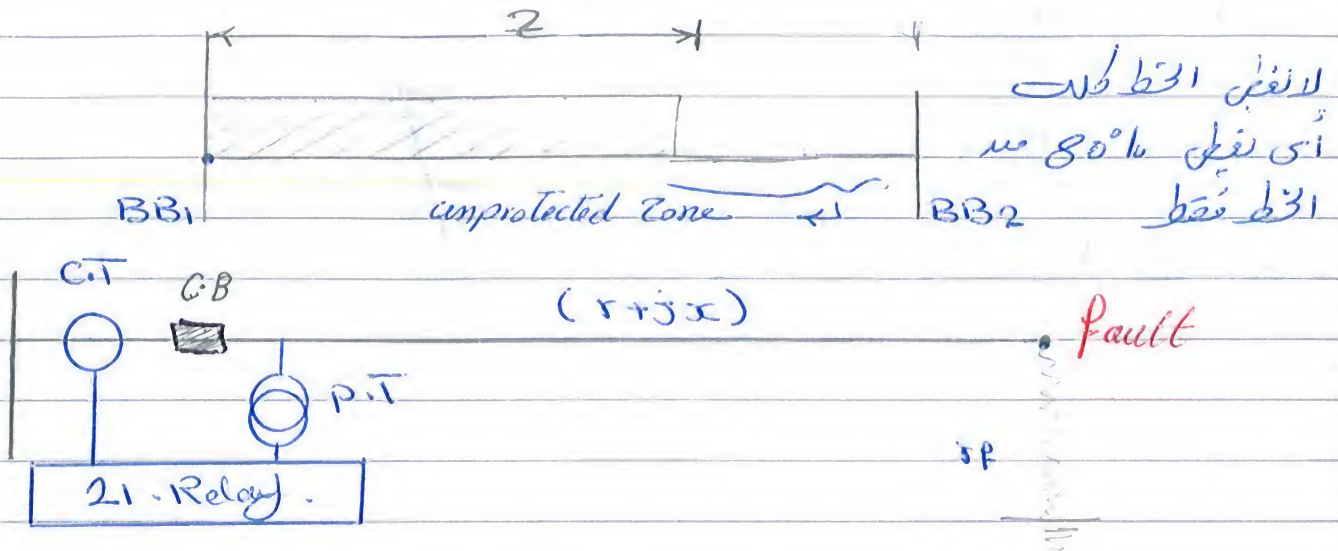 Z
لا نغطي الخط كله
أي نغطي 80% من
الخط فقط
BB1 unprotected Zone BB2
C.T C.B
(r+jx)
fault
P.T
rf
21. Relay.